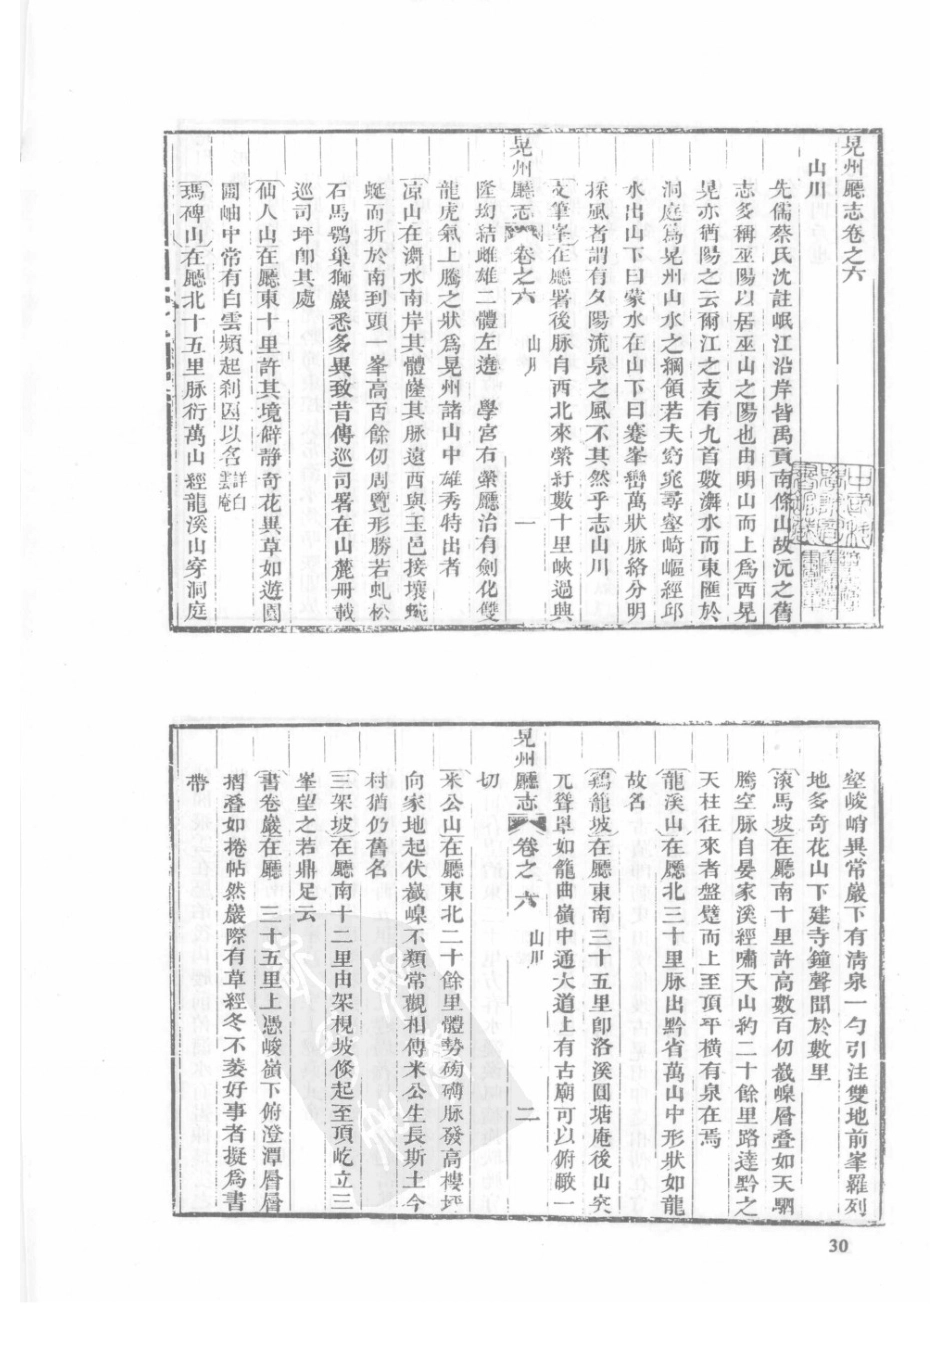 晃州廳志卷之六
山川
先儒蔡氏沈註岷江沿岸皆禹貢南條山故沅之舊
志多稱巫陽以居巫山之陽也由明山而上爲西晃
晃亦猶陽之云爾江之支有九首數潕水而東匯於
洞庭爲晃州山水之綱領若夫窈窕尋壑崎嶇經邱
水出山下曰蒙水在山下曰蹇峯巒萬狀脉絡分明
採風者謂有夕陽流泉之風不其然乎志山川
文筆峯在廳署後脉自西北來縈紆數十里峽過與
晃州廳志 卷之六 山川 一
隆㘭結雌雄二體左遶 學宮右縈廳治有劍化雙
龍虎氣上騰之狀爲晃州諸山中雄秀特出者
凉山在潕水南岸其體隆其脉遠西與玉邑接壤蜿
蜒而折於南到頭一峯高百餘仞周覽形勝若虬松
石馬鶚巢獅巖悉多異致昔傳巡司署在山麓册載
巡司坪卽其處
仙人山在廳東十里許其境僻静奇花異草如遊閬
閬岫中常有白雲頻起刹因以名詳白雲庵
瑪碑山在廳北十五里脉衍萬山經龍溪山穿洞庭
壑峻峭異常巖下有清泉一勺引注雙地前峯羅列
地多奇花山下建寺鐘聲聞於數里
滚馬坡在廳南十里許高數百仞嶔嵲層叠如天駟
騰空脉自晏家溪經嘯天山約二十餘里路達黔之
天柱往來者盤躄而上至頂平橫有泉在焉
龍溪山在廳北三十里脉出黔省萬山中形狀如龍
故名
鷄龍坡在廳東南三十五里卽洛溪圓塘庵後山突
兀聳罩如籠曲嶺中通大道上有古廟可以俯瞰一
晃州廳志 卷之六 山川 二
切
米公山在廳東北二十餘里體勢磅礴脉發高樓坪
向家地起伏嶔嵲不類常觀相傳米公生長斯土今
村猶仍舊名
三架坡在廳南十二里由架梘坡倐起至頂屹立三
峯望之若鼎足云
書卷巖在廳 三十五里上憑峻嶺下俯澄潭層層
摺叠如捲帖然巖際有草經冬不萎好事者擬爲書
帶
30